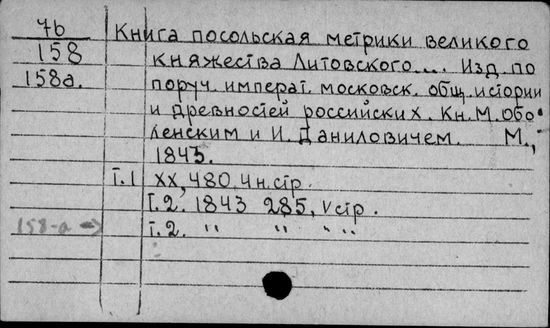 7b
158
158а.
Книга посольская метрики великого
княжества Литовского.... Изд. по
поруч. императ. московск. общ. истории
и древностей российских. Кн. М. Обо-
ленским и И. Даниловичем. М.,
1843.
т.1 XX, 480, 4 н. стр.
т.2. 1843 285, V стр.
158-а → т.2. " " " "